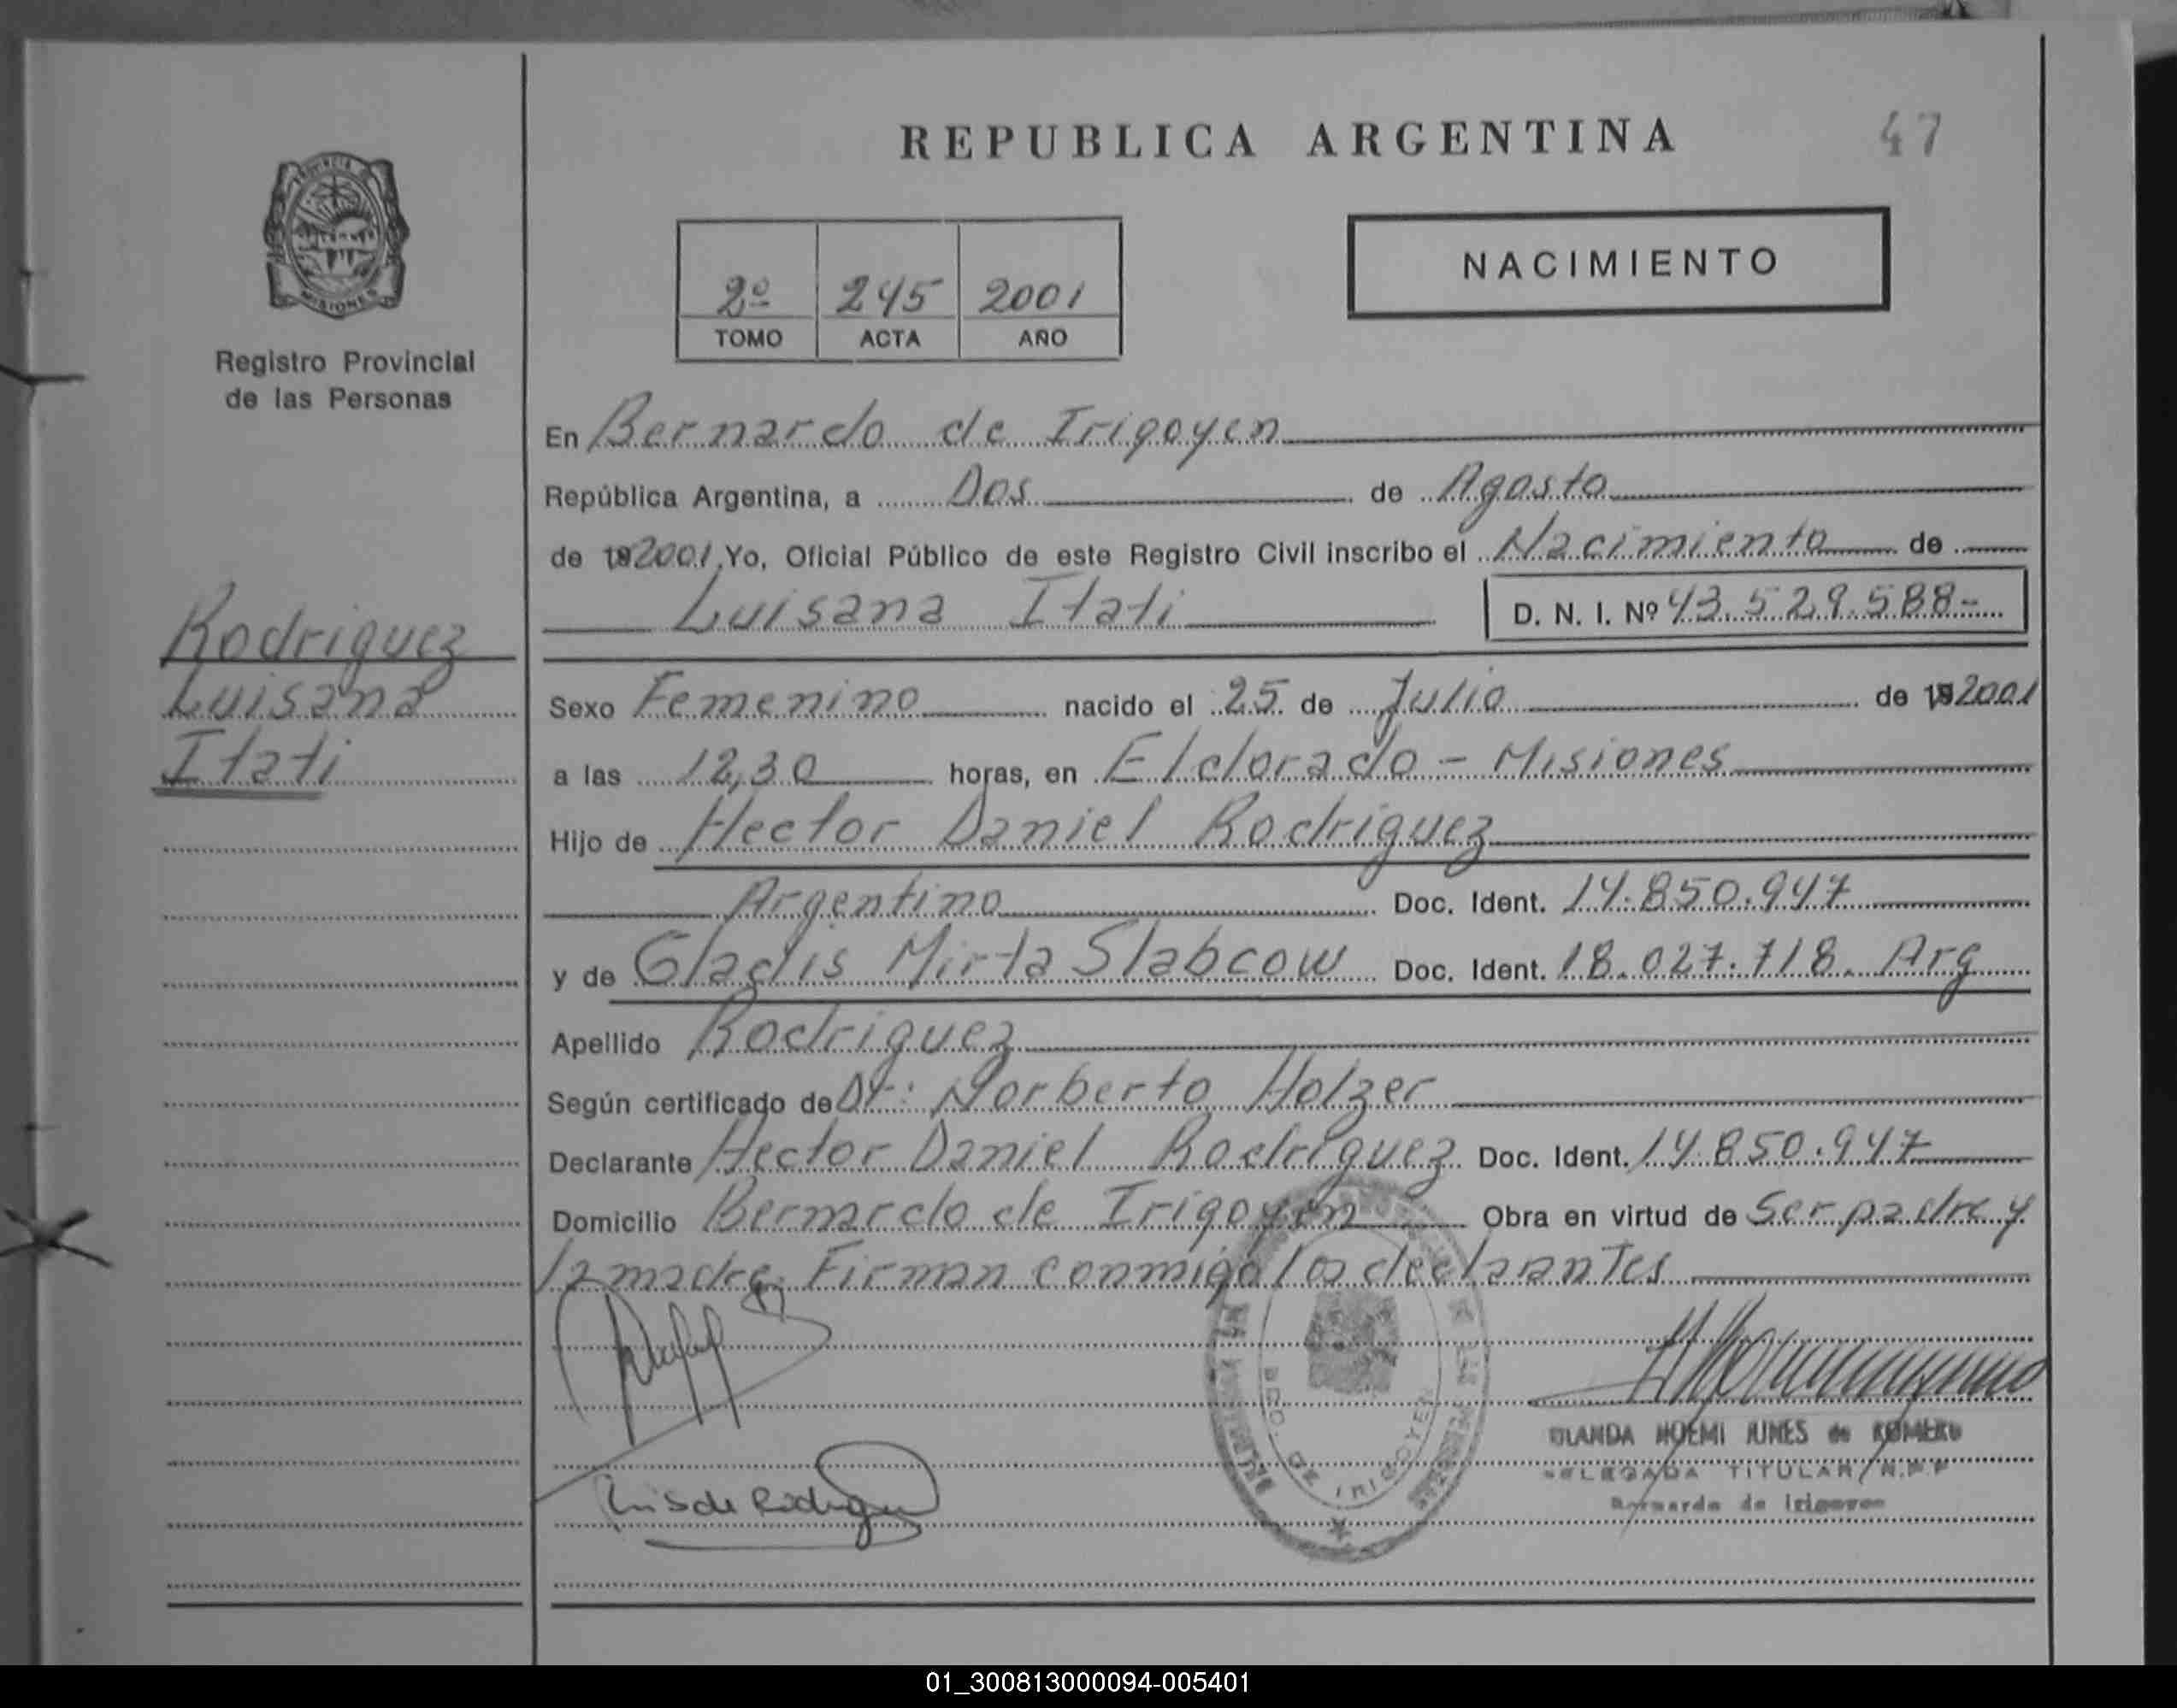 REPUBLICA ARGENTINA
47
PROVINCIA DE
MISIONES
Registro Provincial
de las Personas
2º 245 2001
TOMO ACTA AÑO
NACIMIENTO
En Bernardo de Irigoyen
República Argentina, a Dos de Agosto
de 192001 Yo, Oficial Público de este Registro Civil inscribo el Nacimiento de
Luisana Itati D. N. I. Nº 43.529.588-
Rodriguez
Luisana
Itati
Sexo Femenino nacido el 25 de Julio de 192001
a las 12,30 horas, en Eldorado - Misiones
Hijo de Hector Daniel Rodriguez
Argentino Doc. Ident. 14.850.947
y de Gladis Mirta Slabcow Doc. Ident. 18.027.718. Arg
Apellido Rodriguez
Según certificado de Dr: Norberto Holzer
Declarante Hector Daniel Rodriguez Doc. Ident. 14.850.947
Domicilio Bernardo de Irigoyen Obra en virtud de Ser padre y
la madre. Firman conmigo los declarantes
BDO. DE IRIGOYEN
NOEMI JUNES de ROMERO
DELEGADA TITULAR R.P.P
Bernardo de Irigoyen
de Rodriguez
01_300813000094-005401